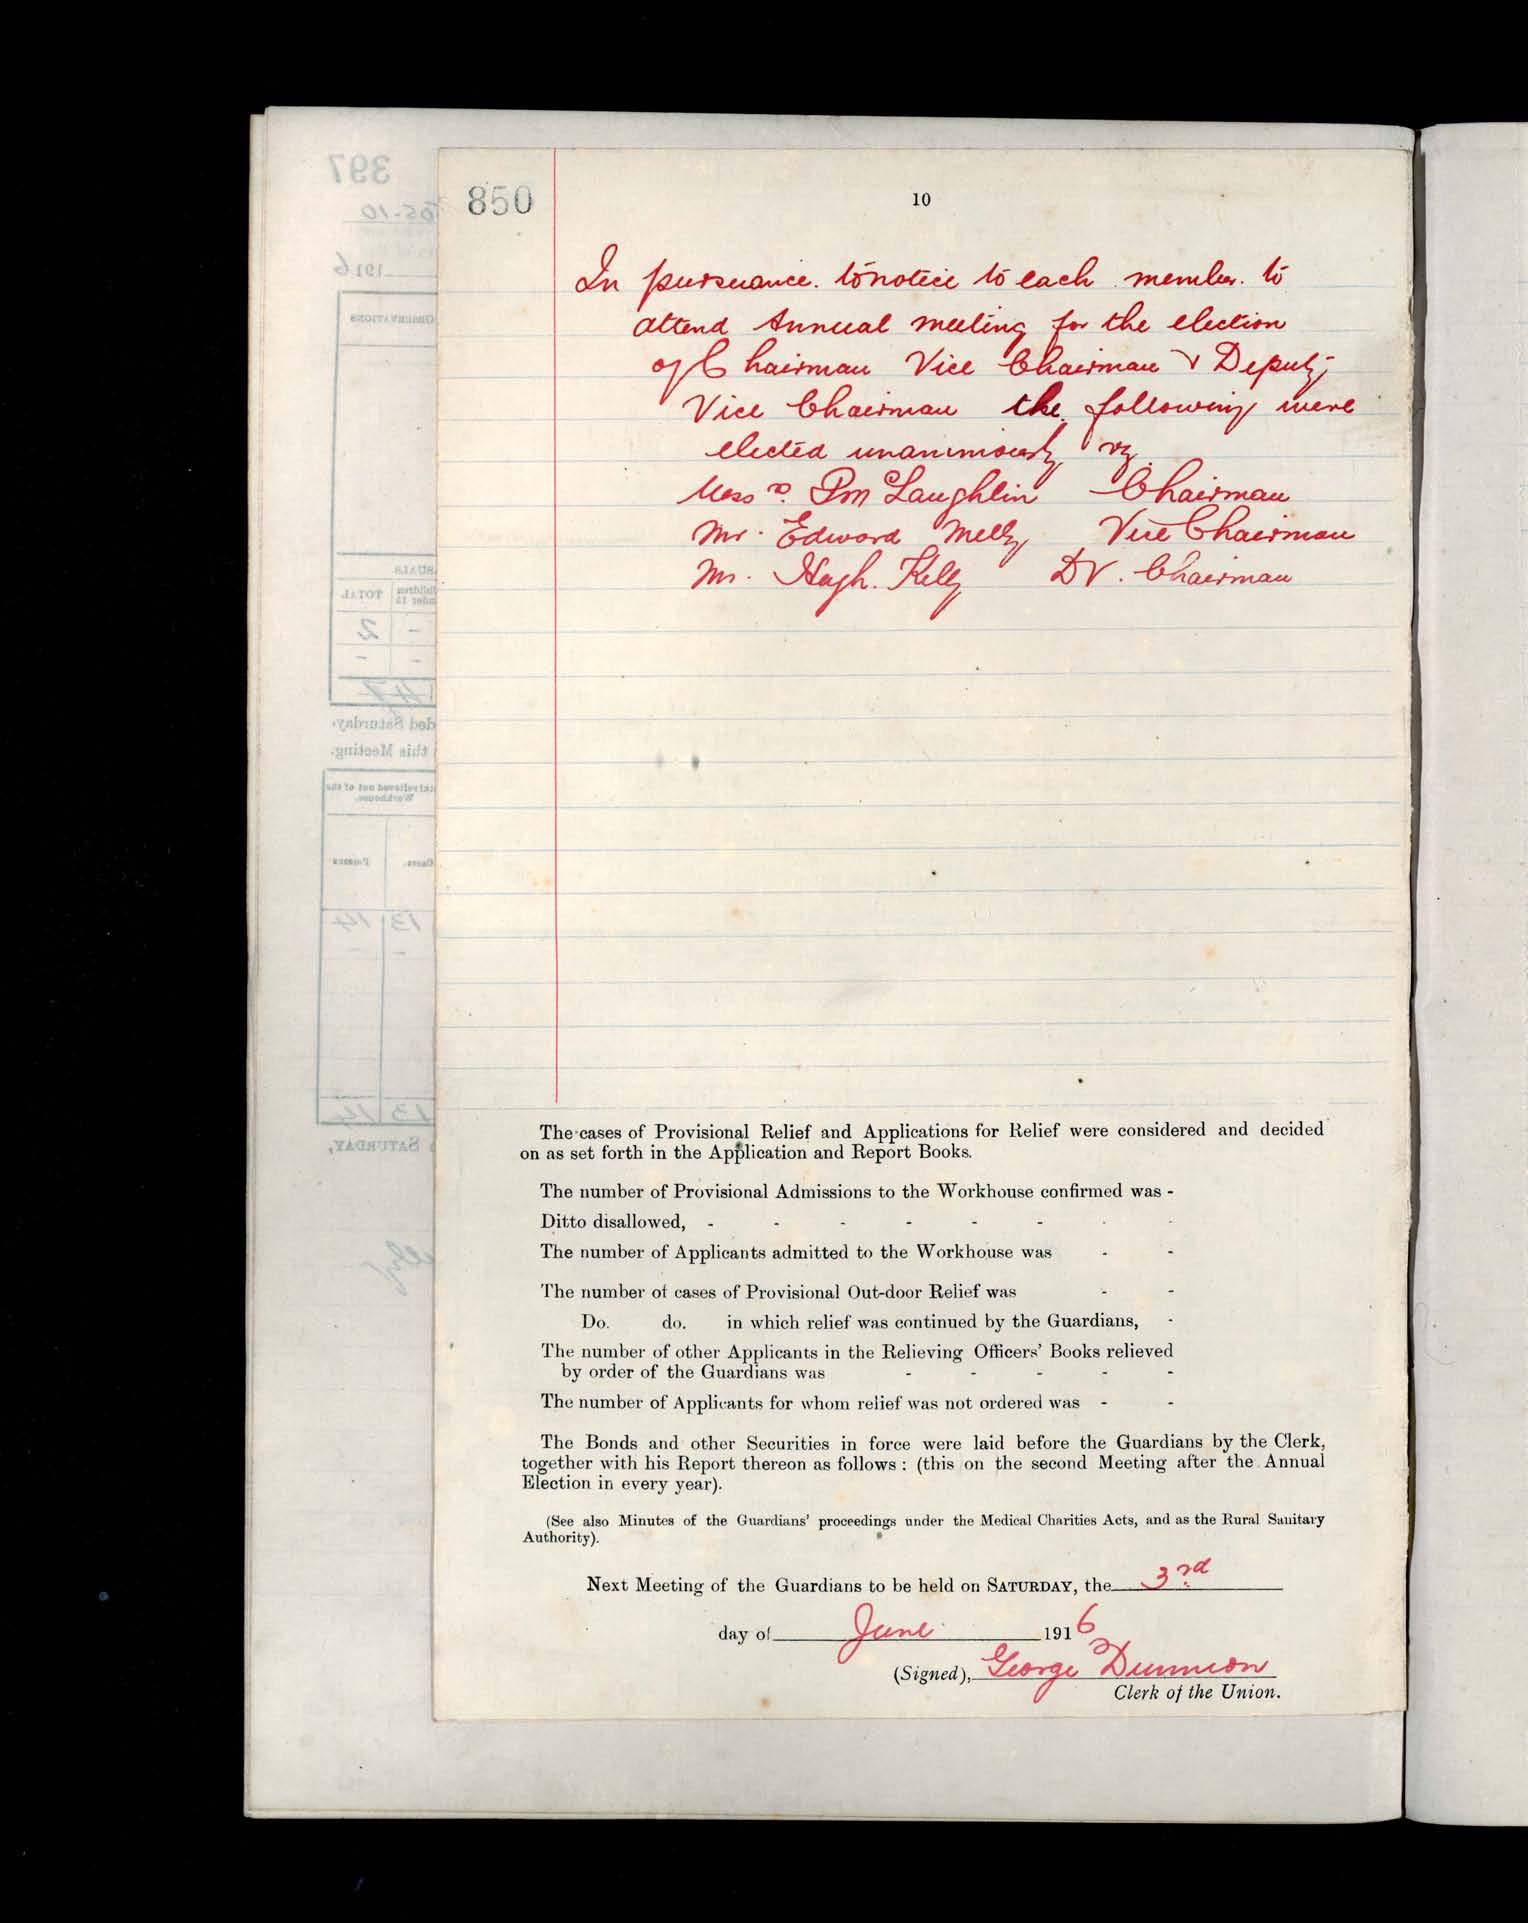 850
10
In pursuance. to notice to each member. to
attend Annual meeting for the election
of Chairman Vice Chairman & Deputy
Vice Chairman the following were
elected unanimously viz
Messrs. P McLaughlin Chairman
Mr. Edward Melly Vice Chairman
Mr. Hugh. Kelly DV. Chairman
The cases of Provisional Relief and Applications for Relief were considered and decided
on as set forth in the Application and Report Books.
The number of Provisional Admissions to the Workhouse confirmed was -
Ditto disallowed, - - - - - - - -
The number of Applicants admitted to the Workhouse was - -
The number of cases of Provisional Out-door Relief was - -
Do. do. in which relief was continued by the Guardians, -
The number of other Applicants in the Relieving Officers' Books relieved
by order of the Guardians was - - - - -
The number of Applicants for whom relief was not ordered was - -
The Bonds and other Securities in force were laid before the Guardians by the Clerk,
together with his Report thereon as follows : (this on the second Meeting after the Annual
Election in every year).
(See also Minutes of the Guardians' proceedings under the Medical Charities Acts, and as the Rural Sanitary
Authority).
Next Meeting of the Guardians to be held on SATURDAY, the 3rd
day of June 1916
(Signed), George Dunnion
Clerk of the Union.
397
1916
OBSERVATIONS
TOTAL
2 -
- -
47
ded Saturday.
this Meeting.
relieved out of the
Workhouse.
Cases. Persons
13 14
- -
13 14
SATURDAY,